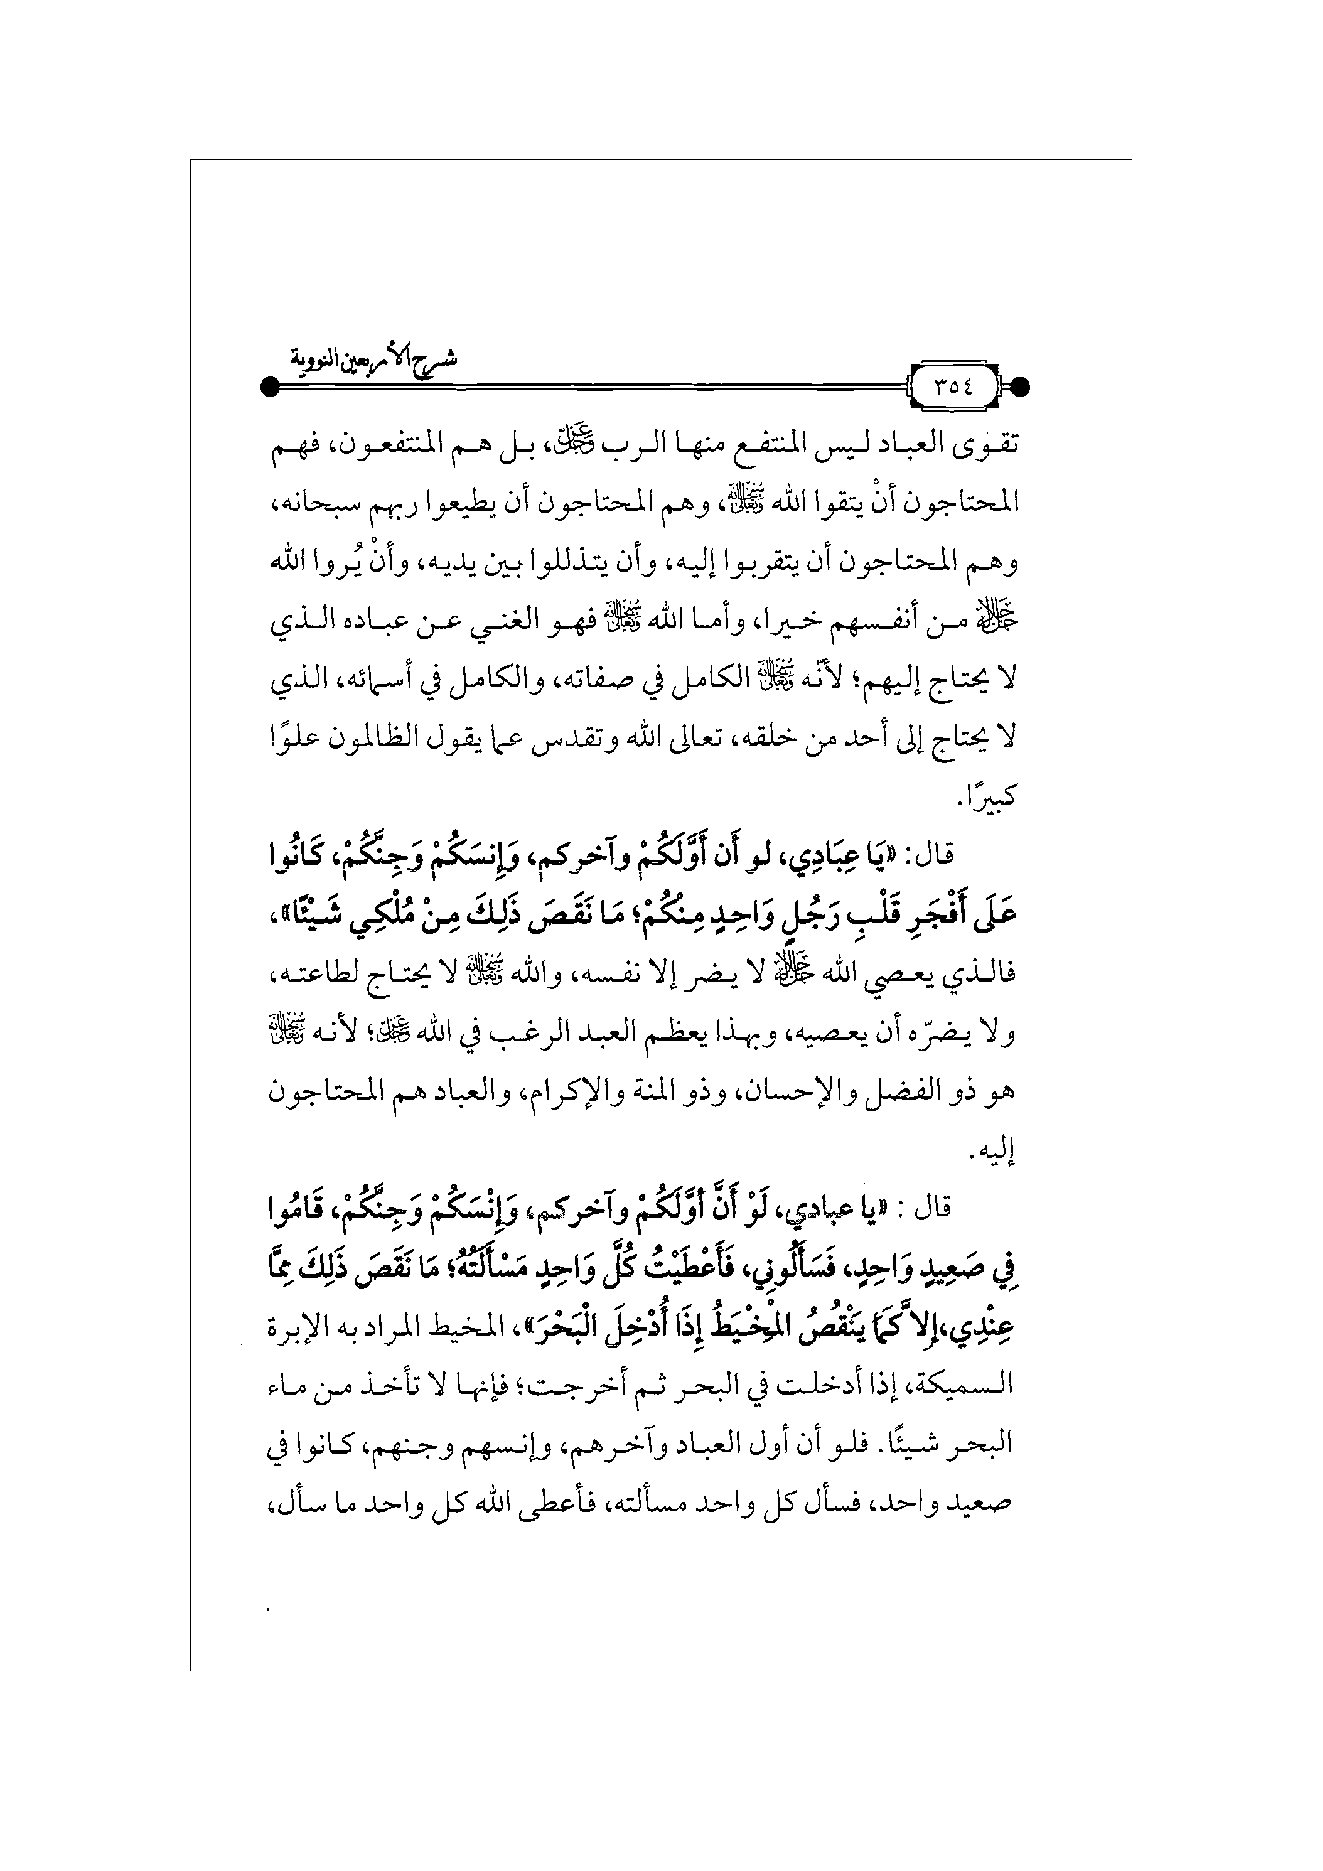 شرح الأربعين النووية
٣٥٤
تقوى العباد ليس المنتفع منها الرب عَزَّوَجَلَّ، بل هم المنتفعون، فهم
المحتاجون أنْ يتقوا الله سُبْحَانَهُ وَتَعَالَى، وهم المحتاجون أن يطيعوا ربهم سبحانه،
وهم المحتاجون أن يتقربوا إليه، وأن يتذللوا بين يديه، وأنْ يُروا الله
جَلَّجَلَالُهُ من أنفسهم خيرا، وأما الله سُبْحَانَهُ وَتَعَالَى فهو الغني عن عباده الذي
لا يحتاج إليهم؛ لأنّه سُبْحَانَهُ وَتَعَالَى الكامل في صفاته، والكامل في أسمائه، الذي
لا يحتاج إلى أحد من خلقه، تعالى الله وتقدس عما يقول الظالمون علوًا
كبيرًا.
قال: «يَا عِبَادِي، لو أَن أَوَّلَكُمْ وآخركم، وَإِنسَكُمْ وَجِنَّكُمْ، كَانُوا
عَلَى أَفْجَرِ قَلْبِ رَجُلٍ وَاحِدٍ مِنكُمْ؛ مَا نَقَصَ ذَلِكَ مِنْ مُلْكِي شَيْئًا»،
فالذي يعصي الله جَلَّجَلَالُهُ لا يضر إلا نفسه، والله سُبْحَانَهُ وَتَعَالَى لا يحتاج لطاعته،
ولا يضرّه أن يعصيه، وبهذا يعظم العبد الرغب في الله عَزَّوَجَلَّ؛ لأنه سُبْحَانَهُ وَتَعَالَى
هو ذو الفضل والإحسان، وذو المنة والإكرام، والعباد هم المحتاجون
إليه.
قال : «يا عبادي، لَوْ أَنَّ أوَّلَكُمْ وآخركم، وَإِنْسَكُمْ وَجِنَّكُمْ، قَامُوا
فِي صَعِيدٍ وَاحِدٍ، فَسَأَلُونِي، فَأَعْطَيْتُ كُلَّ وَاحِدٍ مَسْأَلَتَهُ؛ مَا نَقَصَ ذَلِكَ مِمَّا
عِنْدِي،إلاَّ كَمَا يَنْقُصُ المِخْيَطُ إِذَا أُدْخِلَ الْبَحْرَ»، المخيط المراد به الإبرة
السميكة، إذا أدخلت في البحر ثم أخرجت؛ فإنها لا تأخذ من ماء
البحر شيئًا. فلو أن أول العباد وآخرهم، وإنسهم وجنهم، كانوا في
صعيد واحد، فسأل كل واحد مسألته، فأعطى الله كل واحد ما سأل،